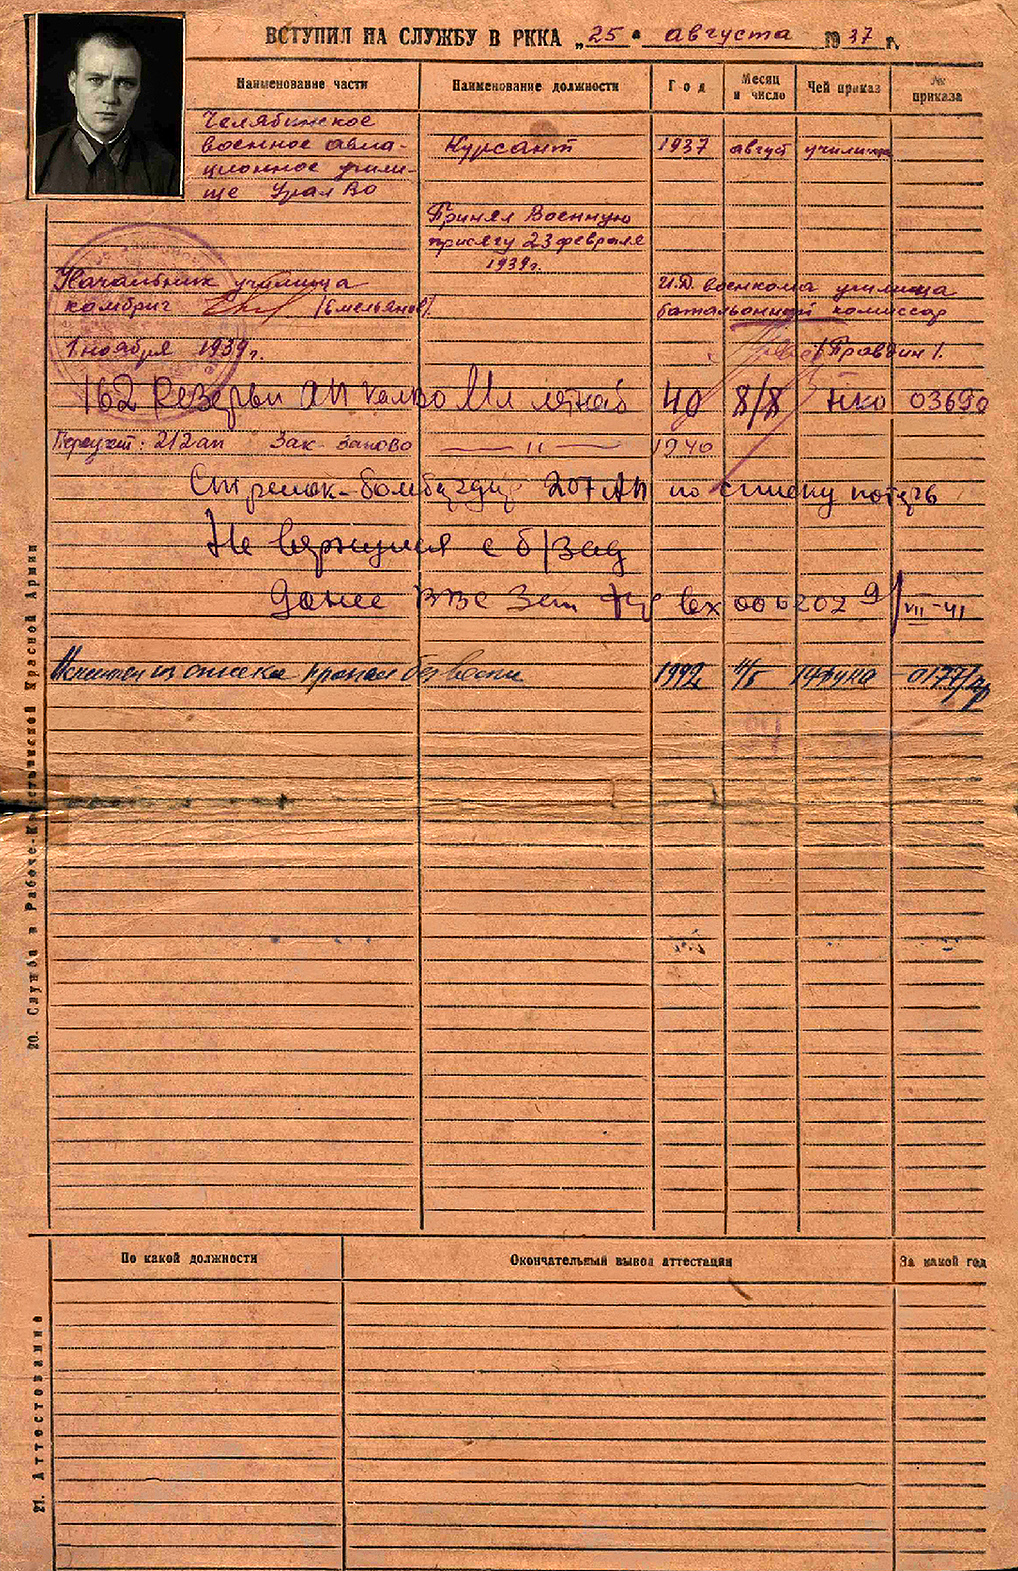 ВСТУПИЛ НА СЛУЖБУ В РККА „25" августа 1937 г.
Наименование части Наименование должности Год Месяц и число Чей приказ № приказа
Челябинское
военное авиа-
ционное учили-
ще УралВо
Курсант 1937 август училища
Принял Военную
присягу 23 февраля
1939г.
Начальник училища
комбриг /Емельянов/
1 ноября 1939г.
И.Д. военкома училища
батальонный комиссар
/Правдин/.
162 Резервн АП Мл летнаб 40 8/8 НКО 03690
212 ап Зак. Запово — 11 — 1940
Стрелок-бомбардир 207 АП по списку потерь
Не вернулся с б/зад
ВВС Зап вх 006202 9/VII-41
Исключен из списка пропал без вести 1942 4/5 0177/
20. Служба в Рабоче-Крестьянской Красной Армии
По какой должности Окончательный вывод аттестации За какой год
21. Аттестование